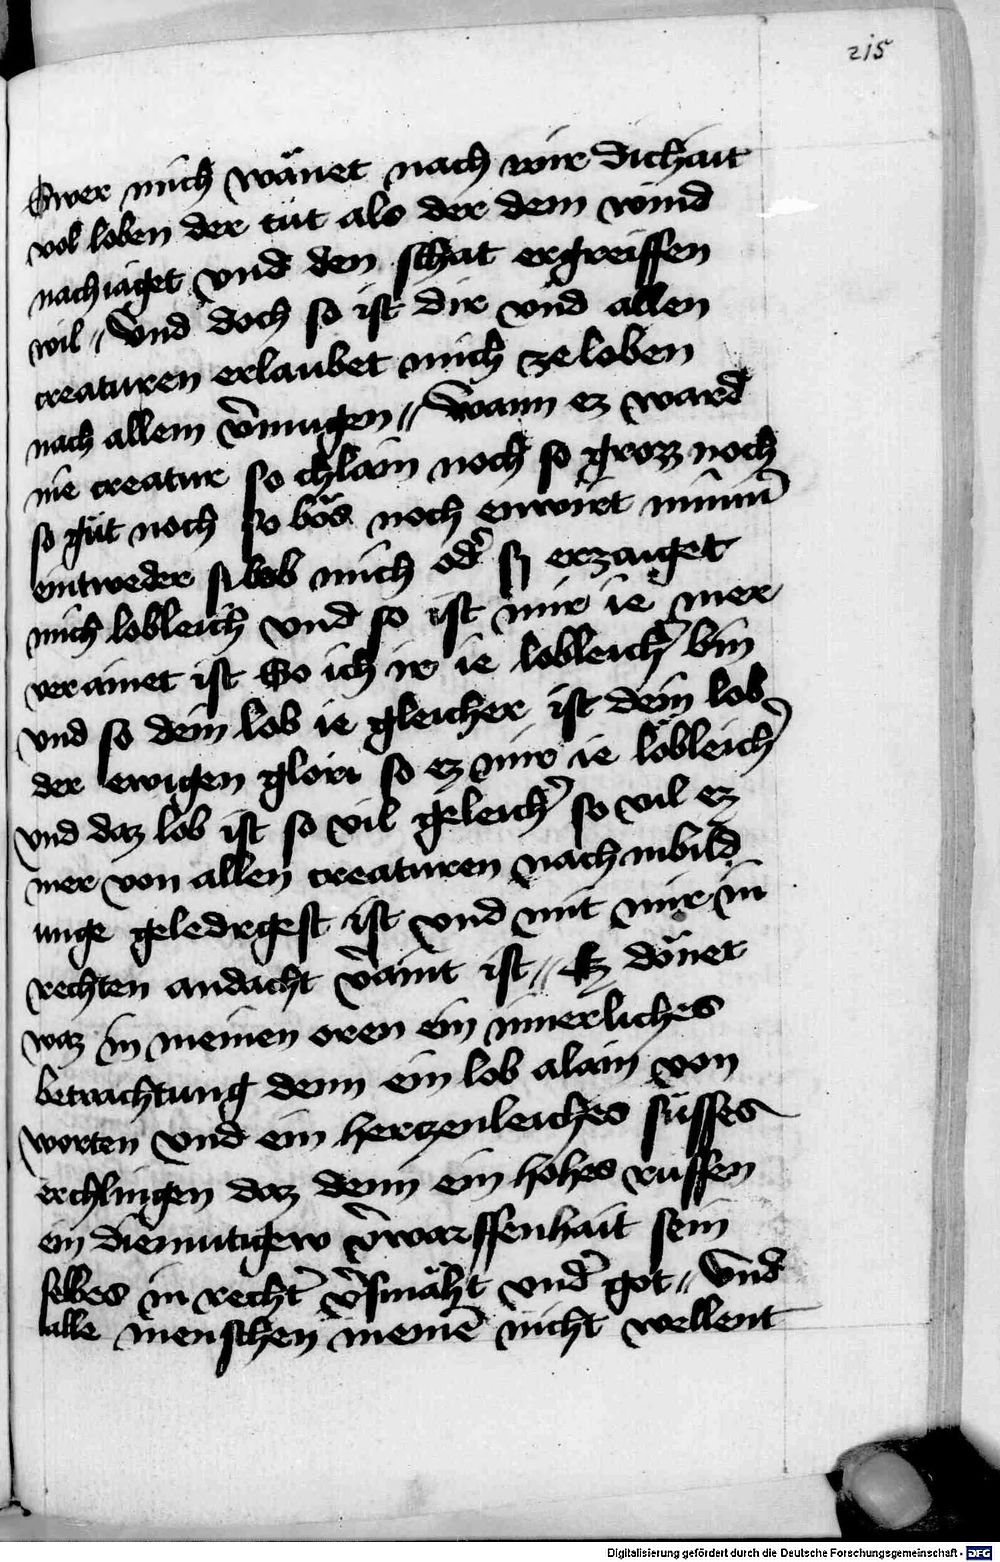 215
Swer mich wänet nach wir dichait
vol loben der tüt als der dem wind
nachiaget vnd den schat ergreiffen
wil // Vnd doch so ist dir vnd allen
creaturen erlaubet mich ze loben
nach allem v̄mugen // Wann ez ward
nie creatur so chlain noch so grozz noch
so güt noch so bös noch enwirt nim̄er
eintweder si lob mich od̄ sy erzaiget
mich lobleich vnd so ist mir ie mer
verainet ist So ich ir ie lobleich̄ bin
vnd so dein lob ie gleicher ist dem lob
der ewigen glori so ez mir ie löbleich̄
vnd daz lob ist so vil geleich̄ so vil ez
mer von allen creaturen nach inbild
unge geledigest ist vnd mit mir in
rechten andacht v̄aint ist // Ez dönet
waz in meinen oren ein innerliches
betrachtung denn ein lob alain von
worten vnd ein hertzenleiches süffes
erchlingen daz denn ein hohes rüffen
ein diemutigew v̄warffenhait sein
selbes in recht̄ v̄smächt vnd̄ got // Vnd
alle menschen meinē nicht wellent
Digitalisierung gefördert durch die Deutsche Forschungsgemeinschaft - DFG